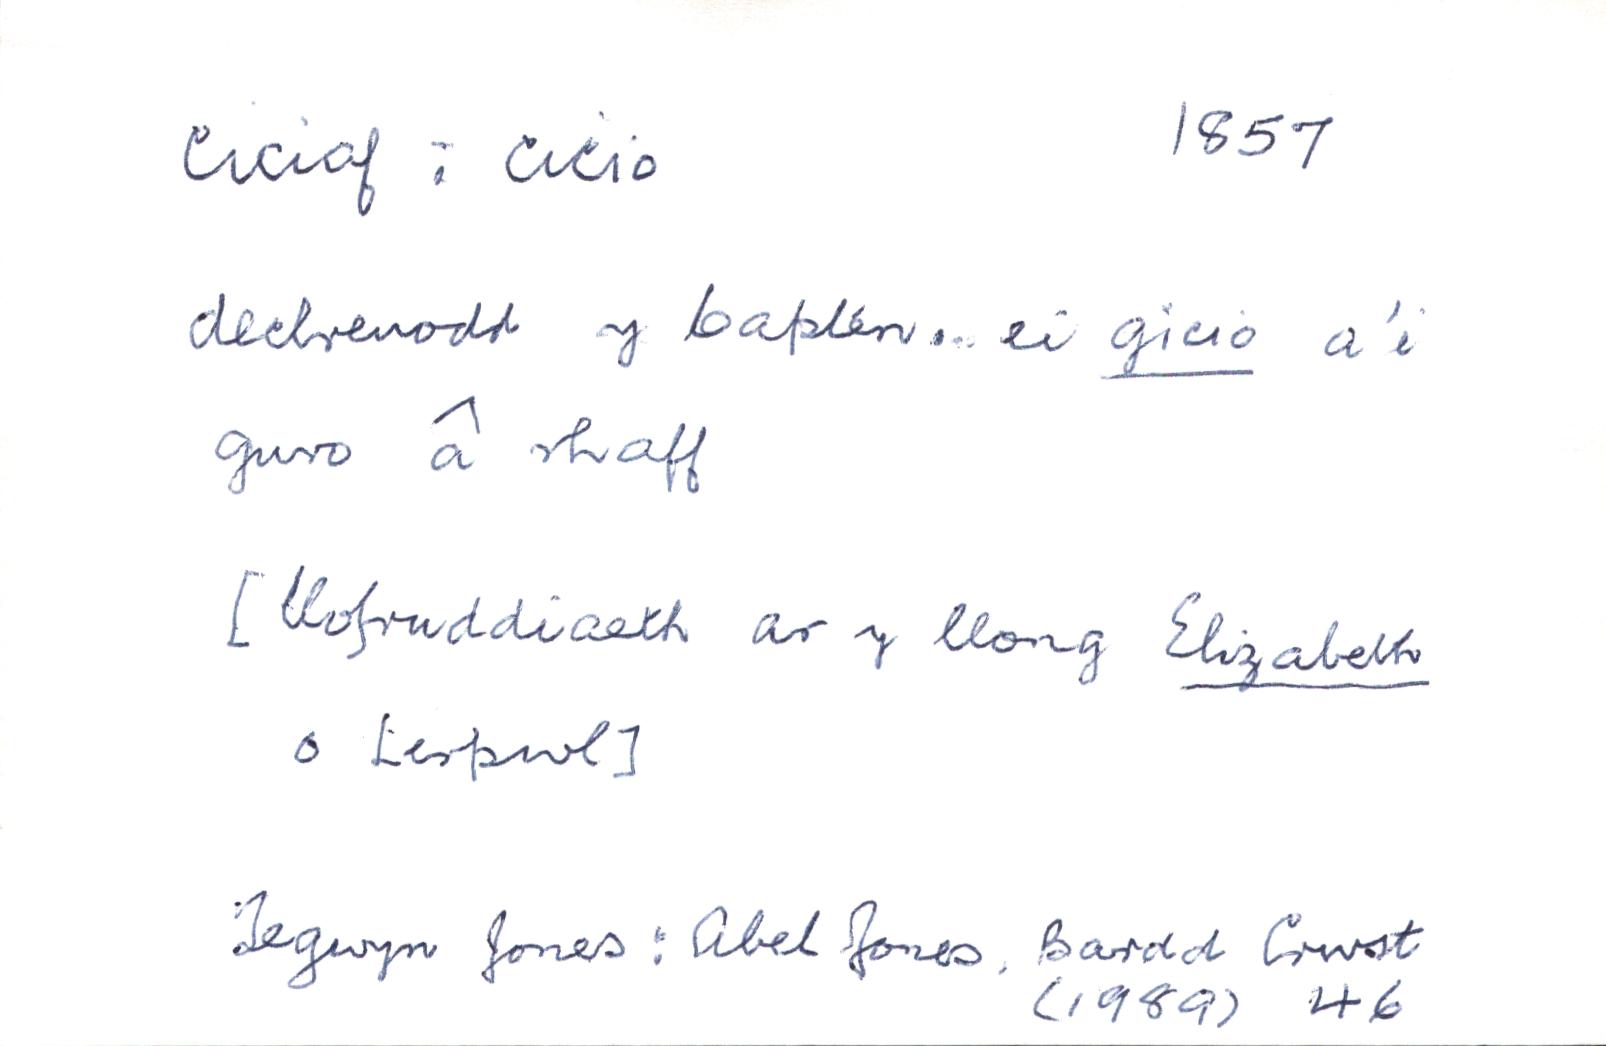 Ciciaf : cicio 1857
dechreuodd y capten... ei gicio a'i
guro â rhaff
[Llofruddiaeth ar y llong Elizabeth
o Lerpwl]
Tegwyn Jones : Abel Jones, Bardd Crwst
(1989) 46